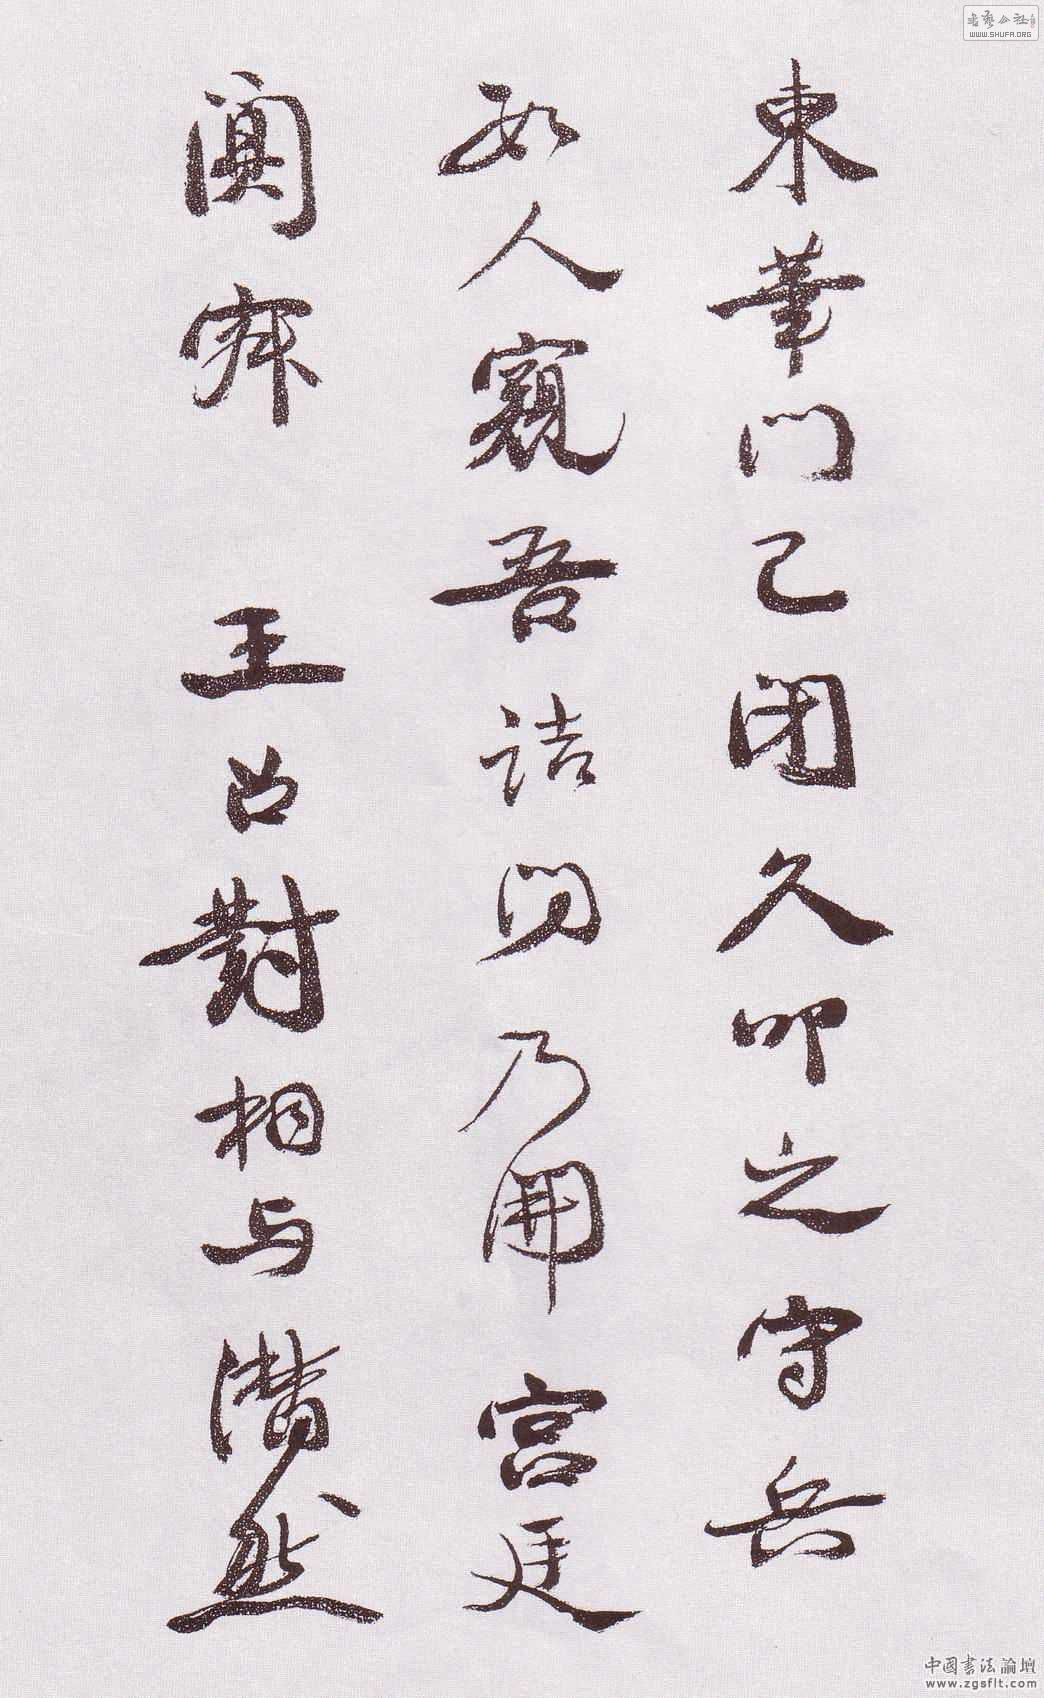 東華門已閉久叩之守兵
數人窺吾詰問乃開宮廷
闃寂 王召對相与潸然
书艺公社
WWW.SHUFA.ORG
中國書法論壇
www.zgsflt.com